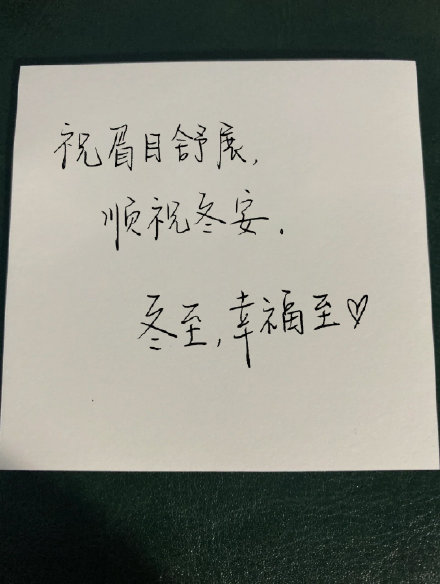 祝眉目舒展，
顺祝冬安．
冬至，幸福至♡